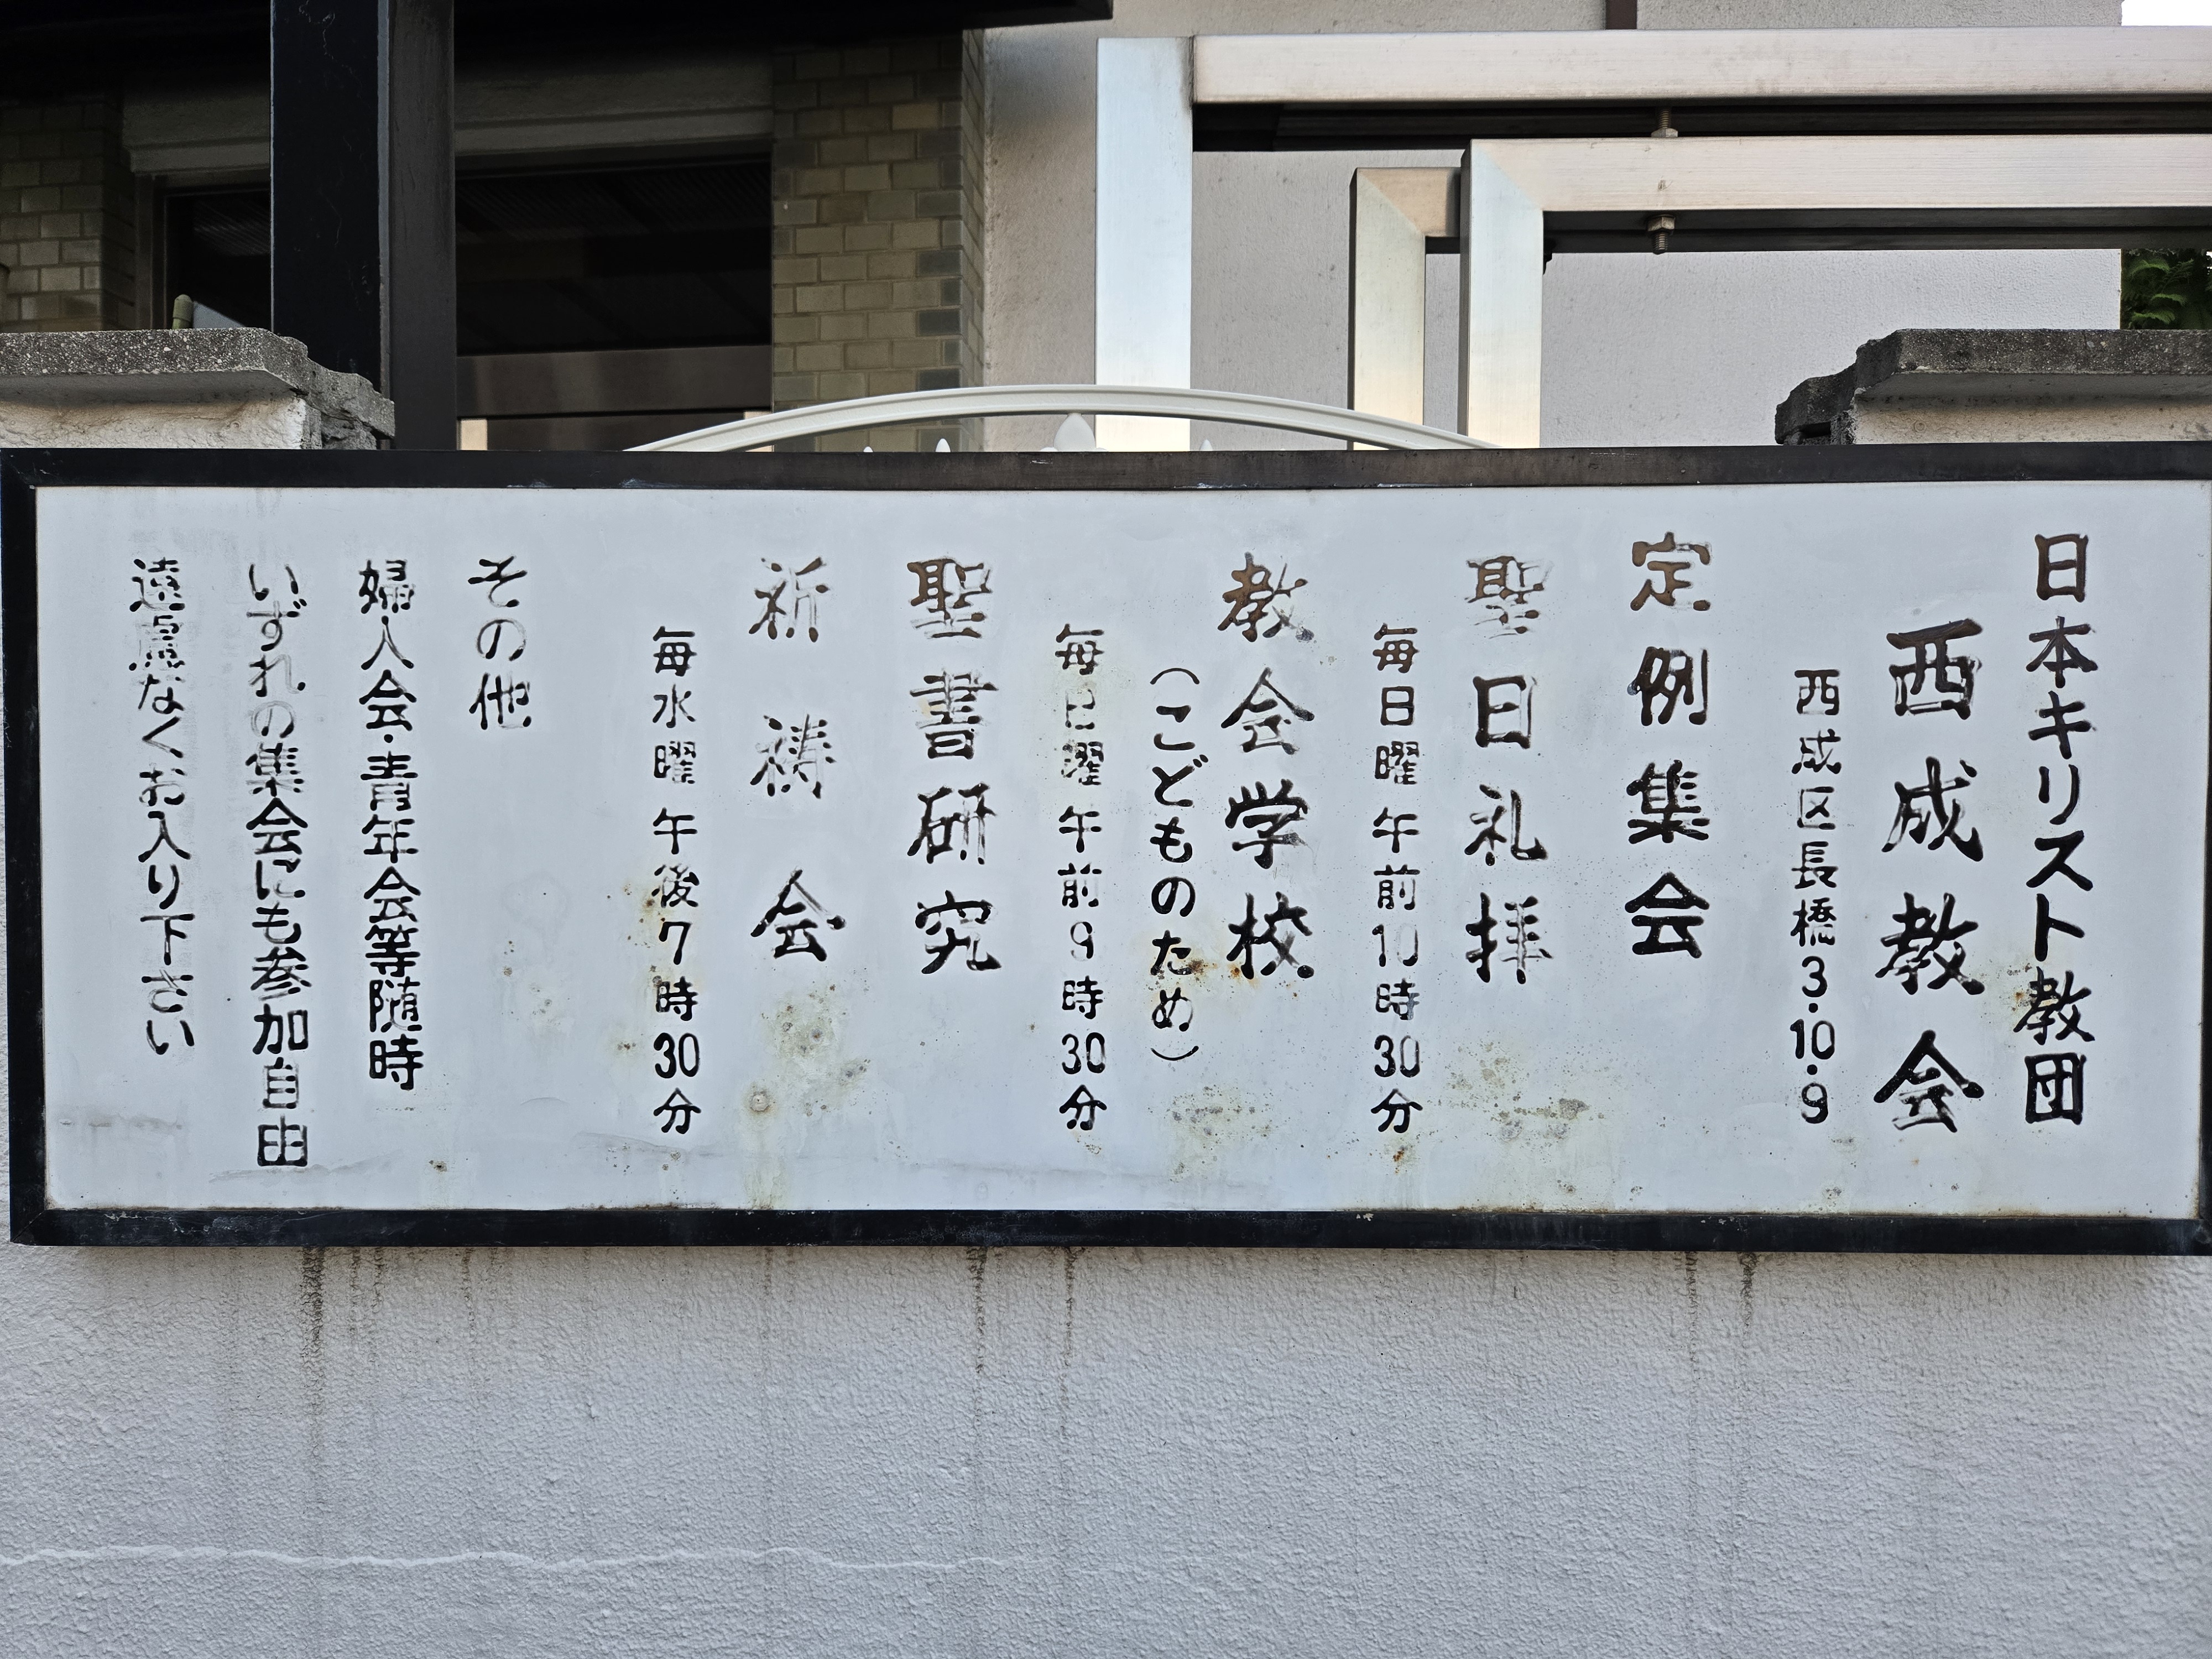 日本キリスト教団
西成教会
西成区長橋3・10・9
定例集会
聖日礼拝
毎日曜午前10時30分
教会学校
(こどものため)
毎日曜午前9時30分
聖書研究
祈祷会
毎水曜午後7時30分
その他
婦人会・青年会等随時
いずれの集会にも参加自由
遠慮なくお入り下さい